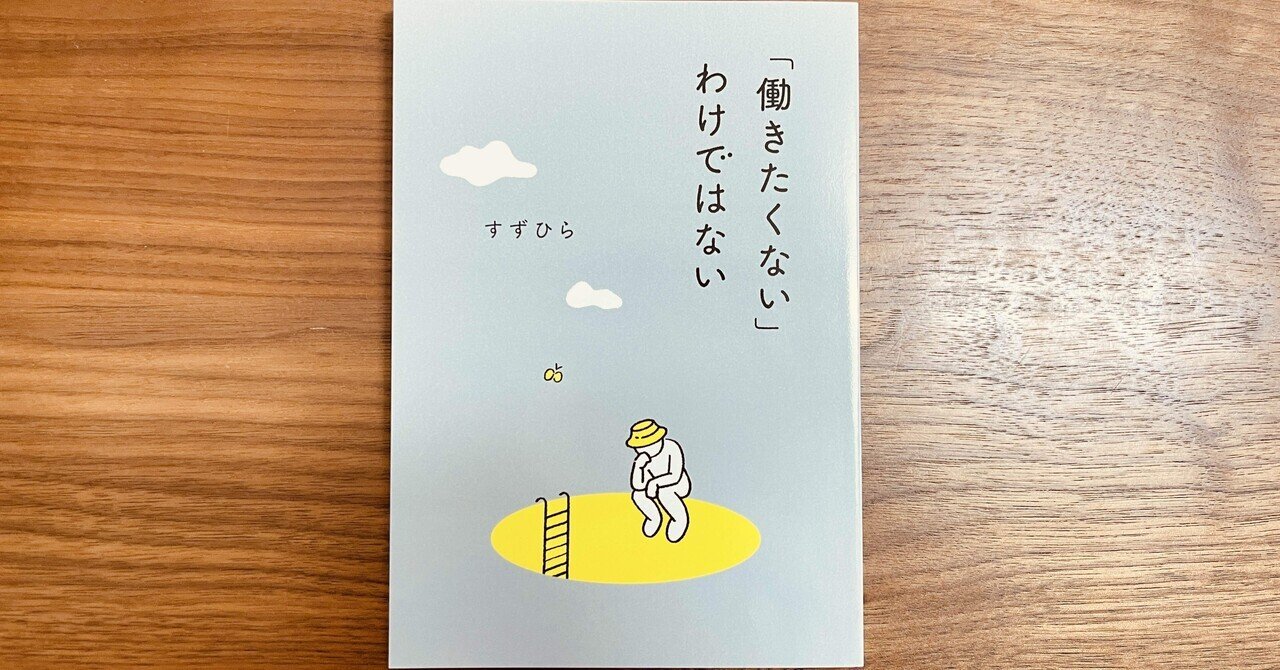 「働きたくない」
わけではない
すずひら